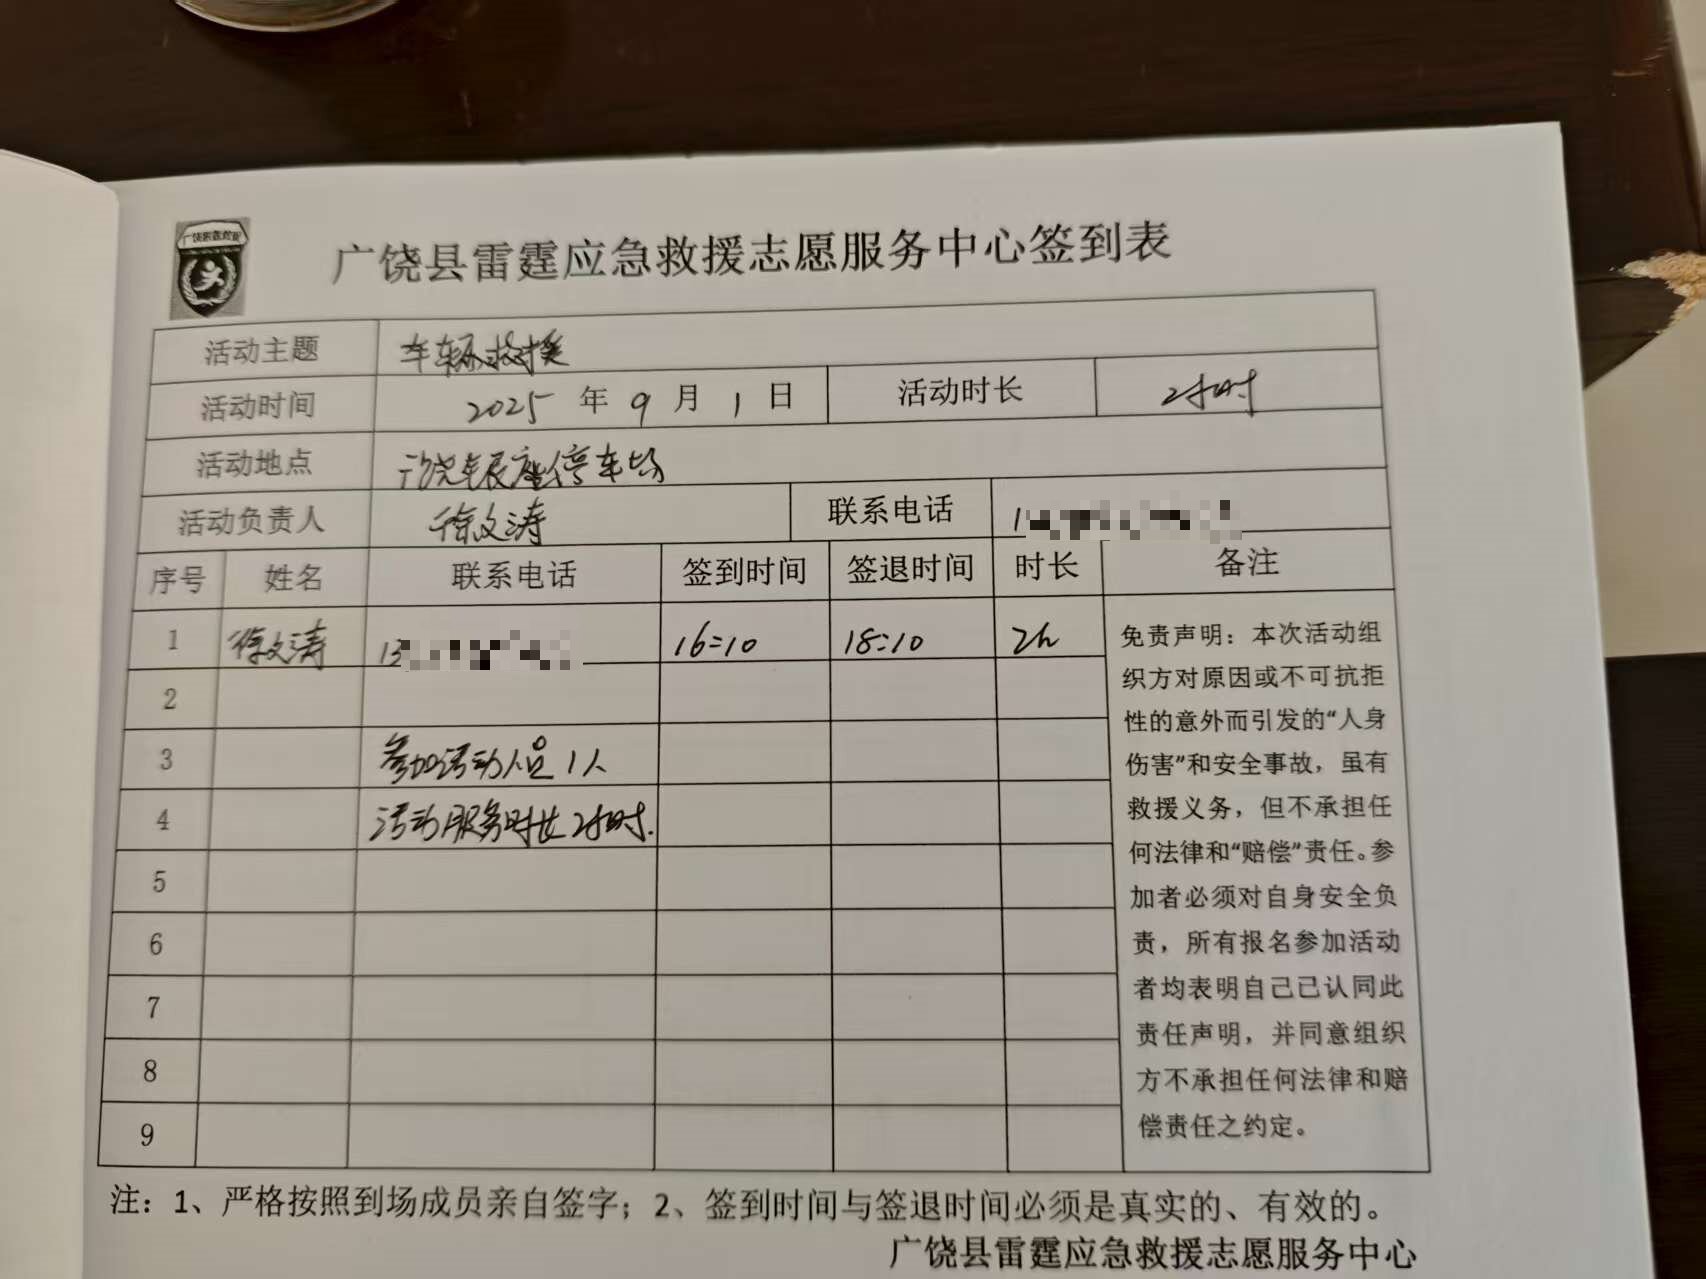 广饶县雷霆应急救援志愿服务中心签到表
活动主题 车辆救援
活动时间 2025 年 9 月 1 日 活动时长 2小时
活动地点 广饶银座停车场
活动负责人 徐文涛 联系电话 1
序号 姓名 联系电话 签到时间 签退时间 时长 备注
1 徐文涛 13 16:10 18:10 2h
2
3 参加活动人员1人
4 活动服务时长2小时.
5
6
7
8
9
免责声明：本次活动组
织方对原因或不可抗拒
性的意外而引发的“人身
伤害”和安全事故，虽有
救援义务，但不承担任
何法律和“赔偿”责任。参
加者必须对自身安全负
责，所有报名参加活动
者均表明自己已认同此
责任声明，并同意组织
方不承担任何法律和赔
偿责任之约定。
注：1、严格按照到场成员亲自签字；2、签到时间与签退时间必须是真实的、有效的。
广饶县雷霆应急救援志愿服务中心